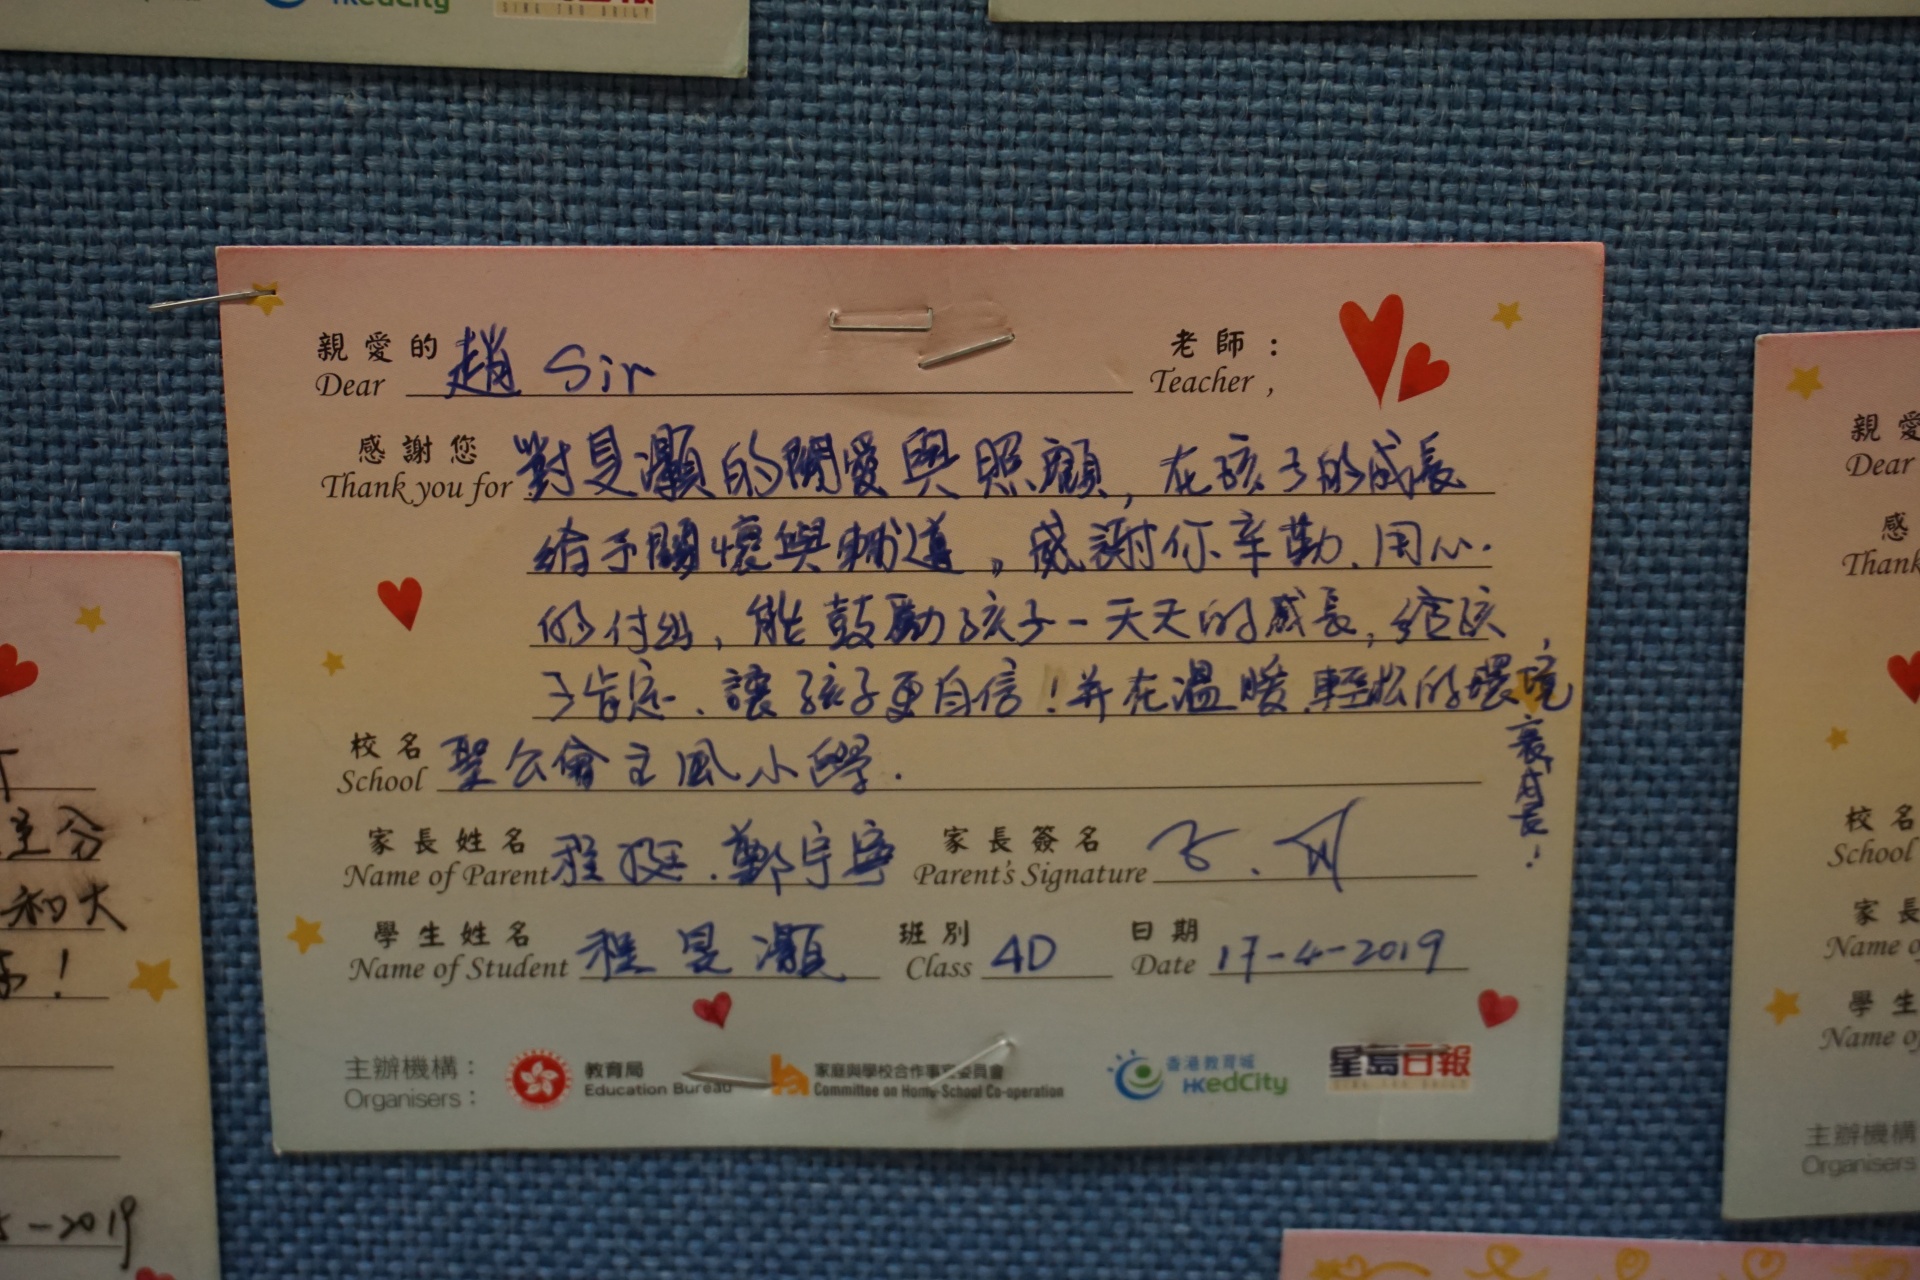 HKedCity
親愛的 趙 Sir 老師：
Dear Teacher ,
感謝您 對昰灝的關愛與照顧，在孩子的成長
Thank you for
給予關懷與輔導。感謝你辛勤、用心
的付出，能鼓勵孩子一天天的成長，給孩
子肯定、讓孩子更自信！并在溫暖、輕松的環境
裏成長！
校名 聖公會主風小學.
School
家長姓名 程挺.鄭宇寧 家長簽名
Name of Parent Parent's Signature
學生姓名 程昰灝 班別 4D 日期 17-4-2019
Name of Student Class Date
主辦機構：
Organisers：
教育局
Education Bureau
家庭與學校合作事宜委員會
Committee on Home-School Co-operation
香港教育城
HKedCity
星島日報
SING TAO DAILY
和大
！
-2019
親愛
Dear
感
Thank
校名
School
家長
Name o
學生
Name o
主辦機構
Organisers